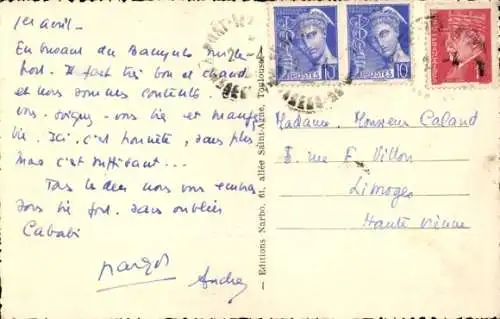 1er avril.
En buvant du Banyuls
port. Il fait très bon et chaud
et nous sommes contents.
vous soignez vous bien et mangez
bien. Ici, c'est honnête, sans plus
mais c'est suffisant...
Tous les deux nous vous embras
sons bien fort. sans oublier
Cababi
Margot
André
Editions Narbo, 61, allée Saint-Agne, Toulouse
POSTES
10
POSTES
10
Madame, Monsieur Caland
8. rue F. Villon
Limoges
Haute Vienne